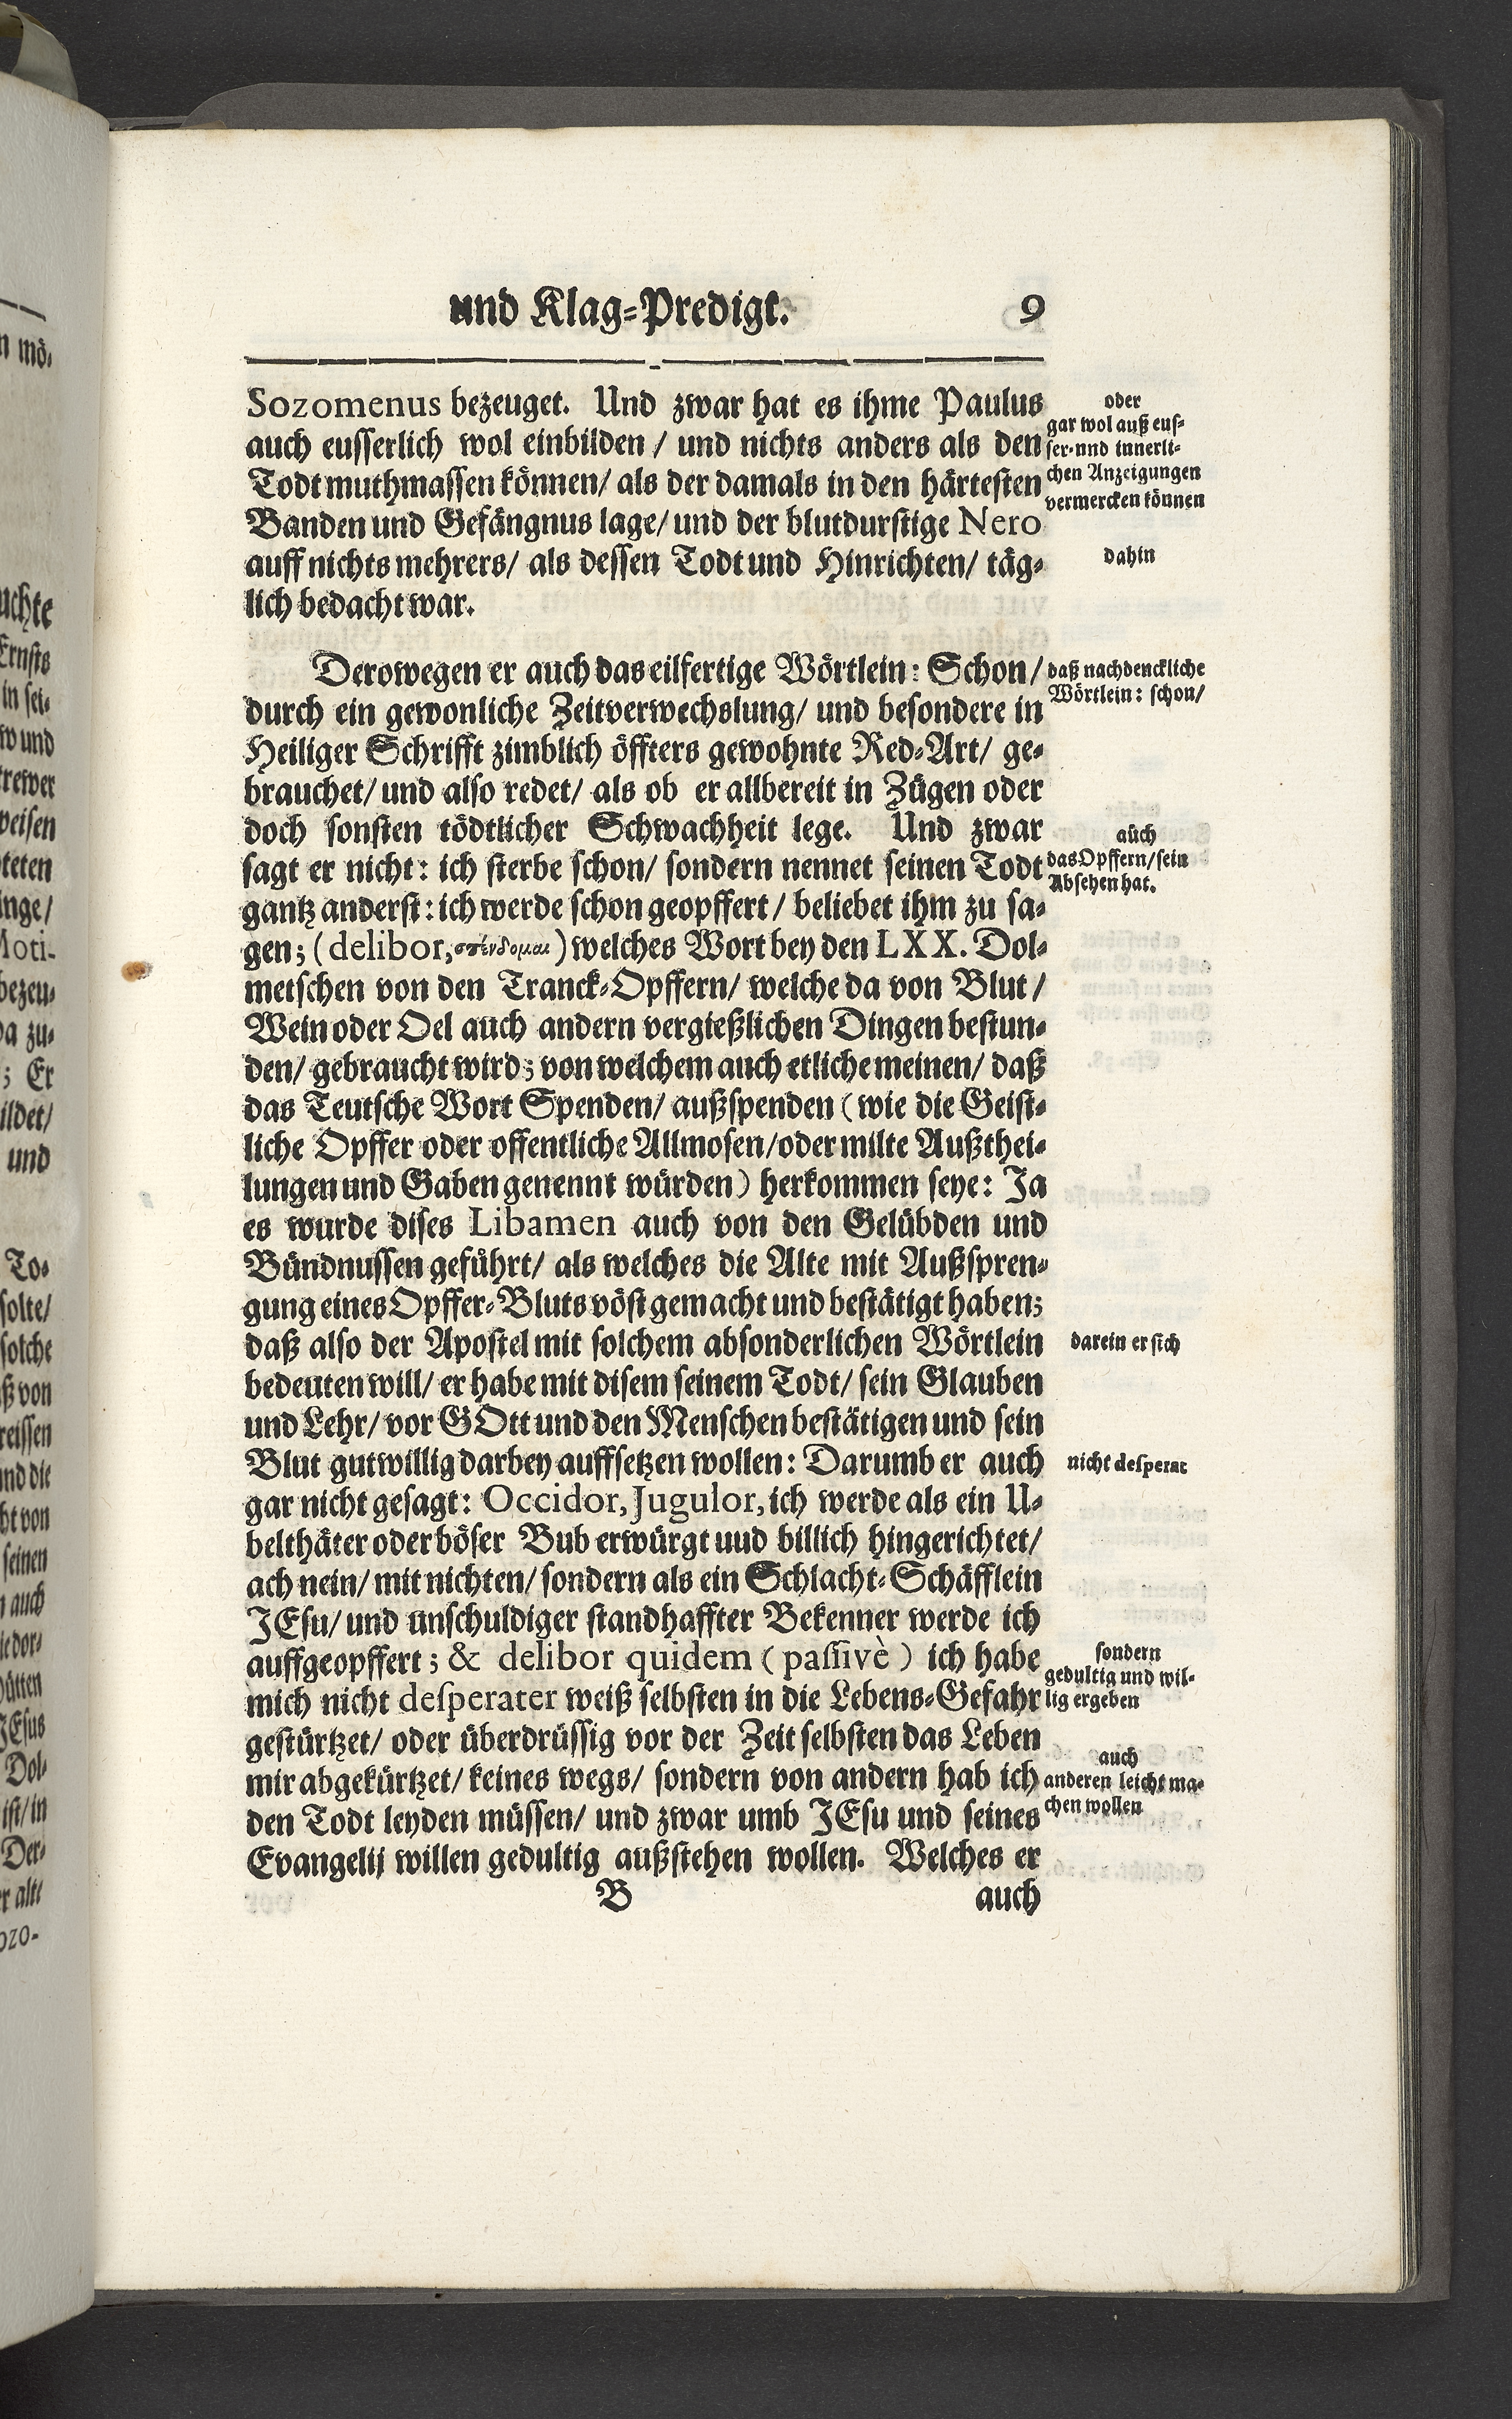 und Klag-Predigt. 9
Sozomenus bezeuget. Und zwar hat es ihme Paulus
auch eusserlich wol einbilden / und nichts anders als den
Todt muthmassen können/ als der damals in den härtesten
Banden und Gefängnus lage/ und der blutdurstige Nero
auff nichts mehrers/ als dessen Todt und Hinrichten/ täg-
lich bedacht war.
oder
gar wol auß eus-
ser- und innerli-
chen Anzeigungen
vermercken können
dahin
Derowegen er auch das eilfertige Wörtlein: Schon/
durch ein gewonliche Zeitverwechslung/ und besondere in
Heiliger Schrifft zimblich öffters gewohnte Red-Art/ ge-
brauchet/ und also redet/ als ob er allbereit in Zügen oder
doch sonsten tödtlicher Schwachheit lege. Und zwar
sagt er nicht: ich sterbe schon/ sondern nennet seinen Todt
gantz anderst: ich werde schon geopffert / beliebet ihm zu sa-
gen; (delibor, σπένδομαι) welches Wort bey den LXX. Dol-
metschen von den Tranck-Opffern/ welche da von Blut /
Wein oder Oel auch andern vergießlichen Dingen bestun-
den/ gebraucht wird; von welchem auch etliche meinen/ daß
das Teutsche Wort Spenden/ außspenden (wie die Geist-
liche Opffer oder offentliche Allmosen/ oder milte Außthei-
lungen und Gaben genennt würden) herkommen seye: Ja
es wurde dises Libamen auch von den Gelübden und
Bündnussen geführt/ als welches die Alte mit Außspren-
gung eines Opffer-Bluts vöst gemacht und bestätigt haben;
daß also der Apostel mit solchem absonderlichen Wörtlein
bedeuten will/ er habe mit disem seinem Todt/ sein Glauben
und Lehr/ vor GOtt und den Menschen bestätigen und sein
Blut gutwillig darbey auffsetzen wollen: Darumb er auch
gar nicht gesagt: Occidor, Jugulor, ich werde als ein U-
belthäter oder böser Bub erwürgt uud billich hingerichtet/
ach nein/ mit nichten/ sondern als ein Schlacht-Schäfflein
JEsu/ und unschuldiger standhaffter Bekenner werde ich
auffgeopffert; & delibor quidem (passivè) ich habe
mich nicht desperater weiß selbsten in die Lebens-Gefahr
gestürtzet/ oder überdrüssig vor der Zeit selbsten das Leben
mir abgekürtzet/ keines wegs/ sondern von andern hab ich
den Todt leyden müssen/ und zwar umb JEsu und seines
Evangelij willen gedultig außstehen wollen. Welches er
daß nachdenckliche
Wörtlein: schon/
auch
das Opffern/ sein
Absehen hat.
darein er sich
nicht desperat
sondern
gedultig und wil-
lig ergeben
auch
anderen leicht ma-
chen wollen
B auch